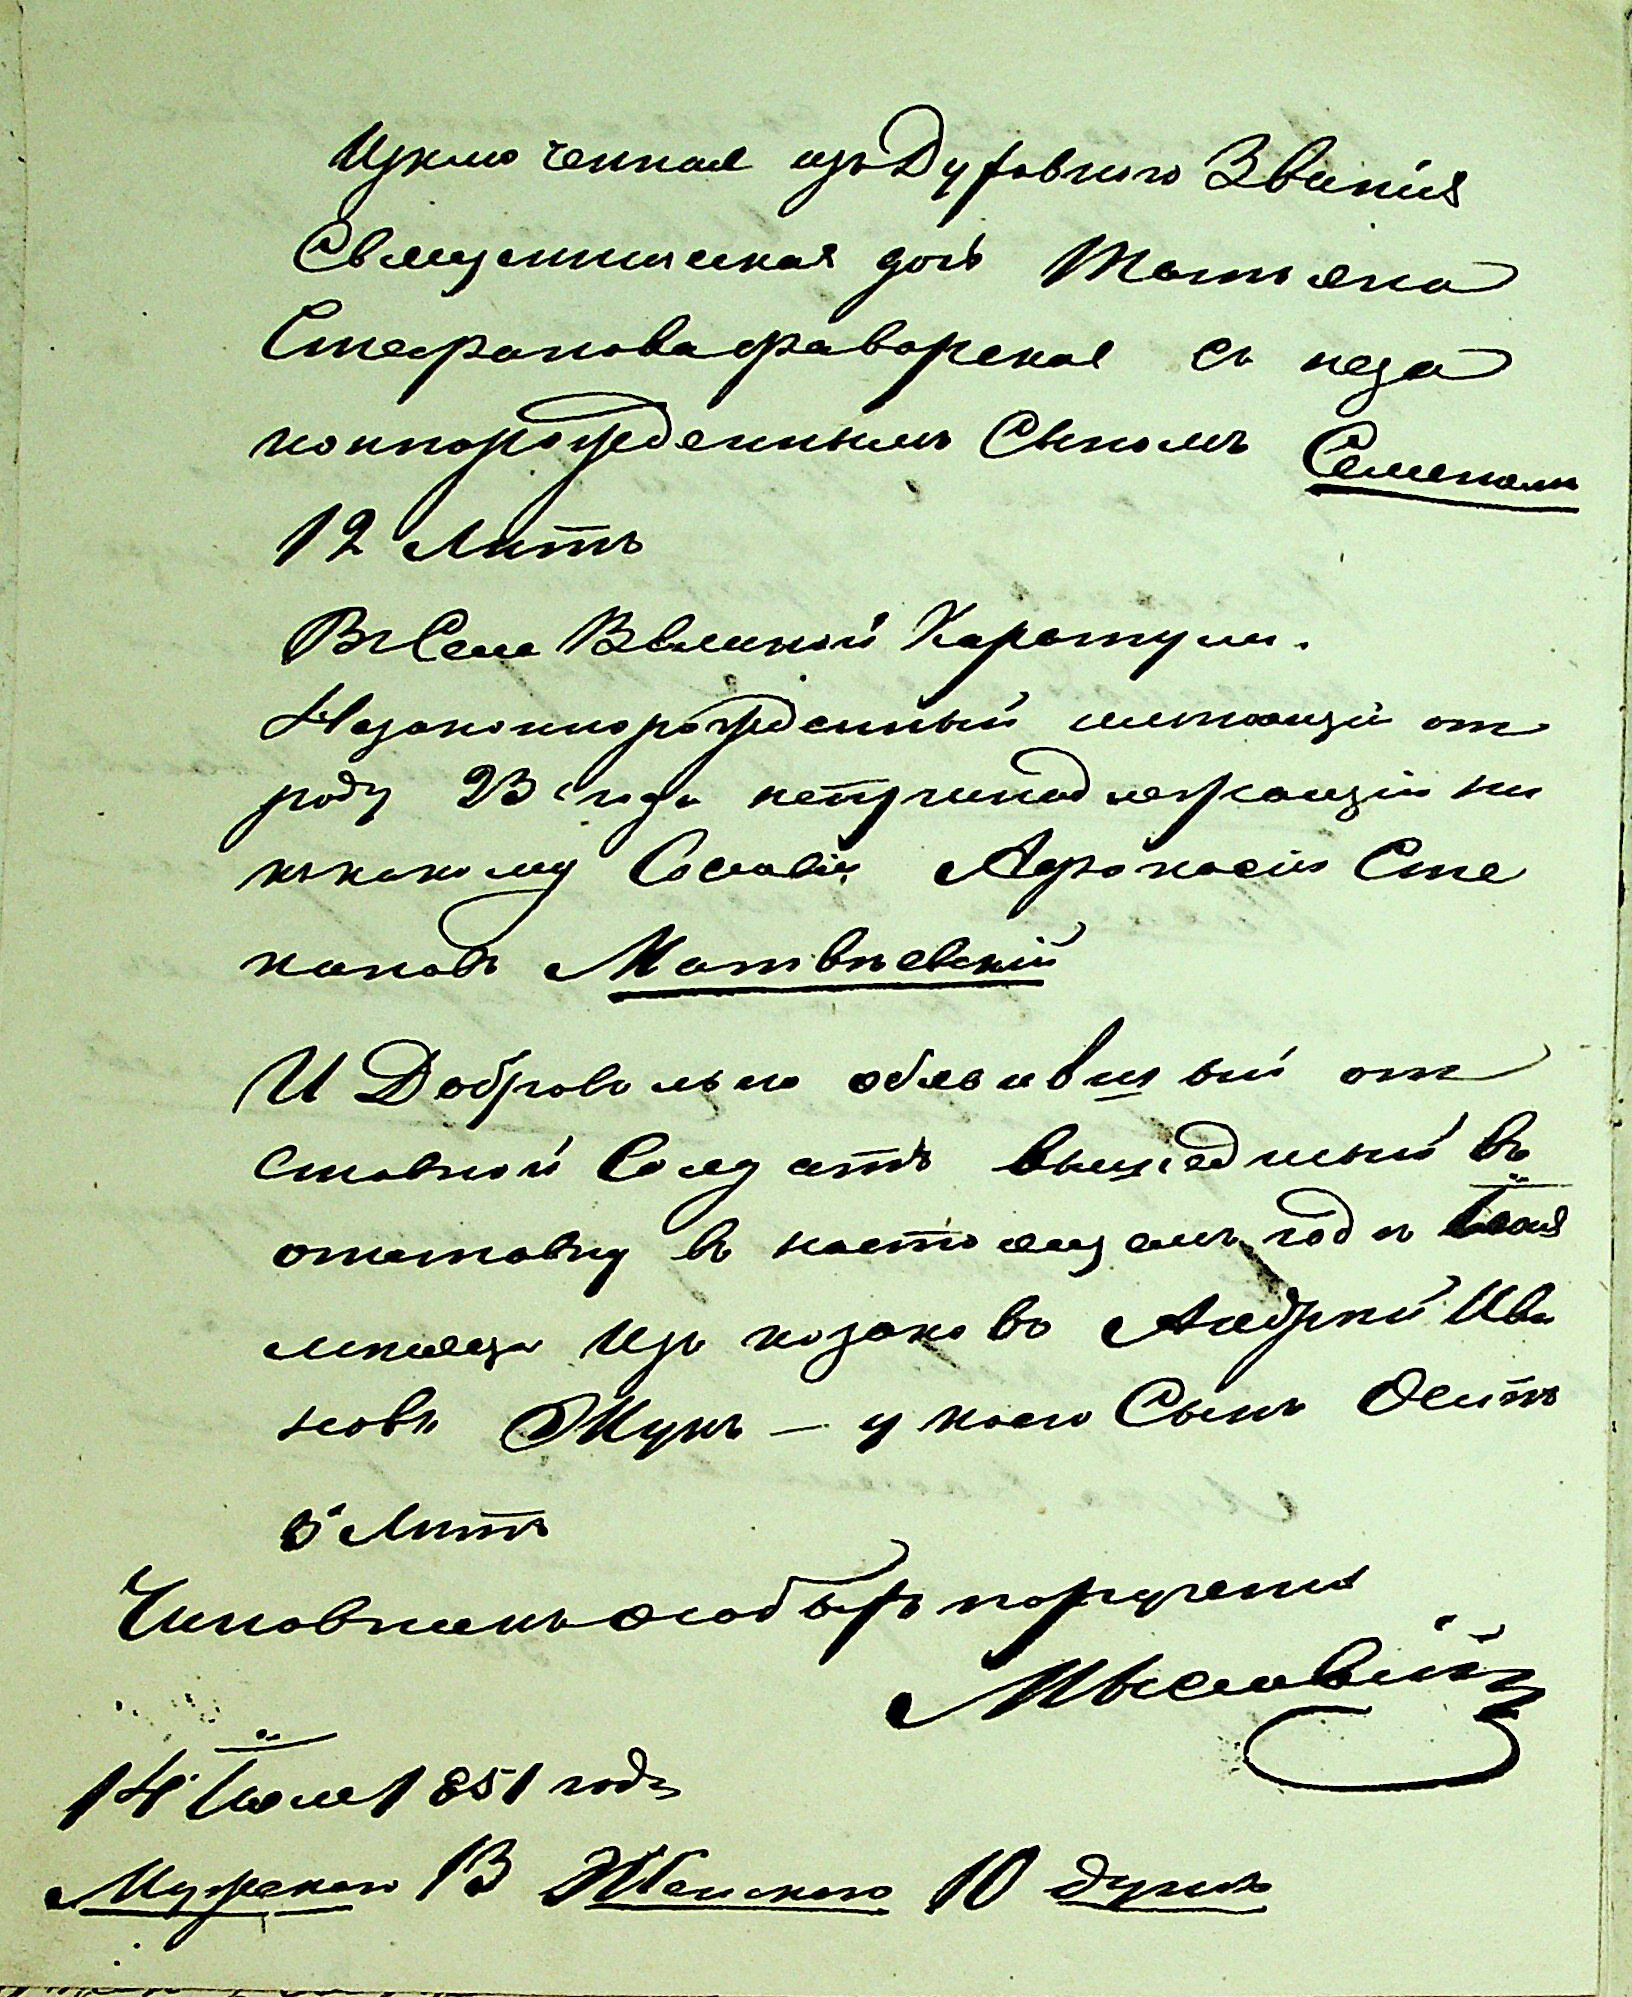 Изключенная изъ Духовного Звания
Священническая дочь Татьяна
Стефанова Фаворская съ неза
коннорожденнымъ Сыномъ Семеномъ
12 Литъ
Въ Селе Великой Каратули.
Незаконнорожденный имеющий от
роду 23 года непринадлежащий ни
къ какому Сословію Афонасий Сте
пановъ Матвъевский
И Добровольно объявивший от
ставной Солдатъ вышедший въ
отставку въ настоящемъ годъ
месяца Изъ козаковъ Андрей Ива
новъ Жукъ — у коего Сынъ Осипъ
Литъ
Чиновникъ особыхъ порученій
14 Июля 1851 года
Мужеского 13 Женского 10 душъ